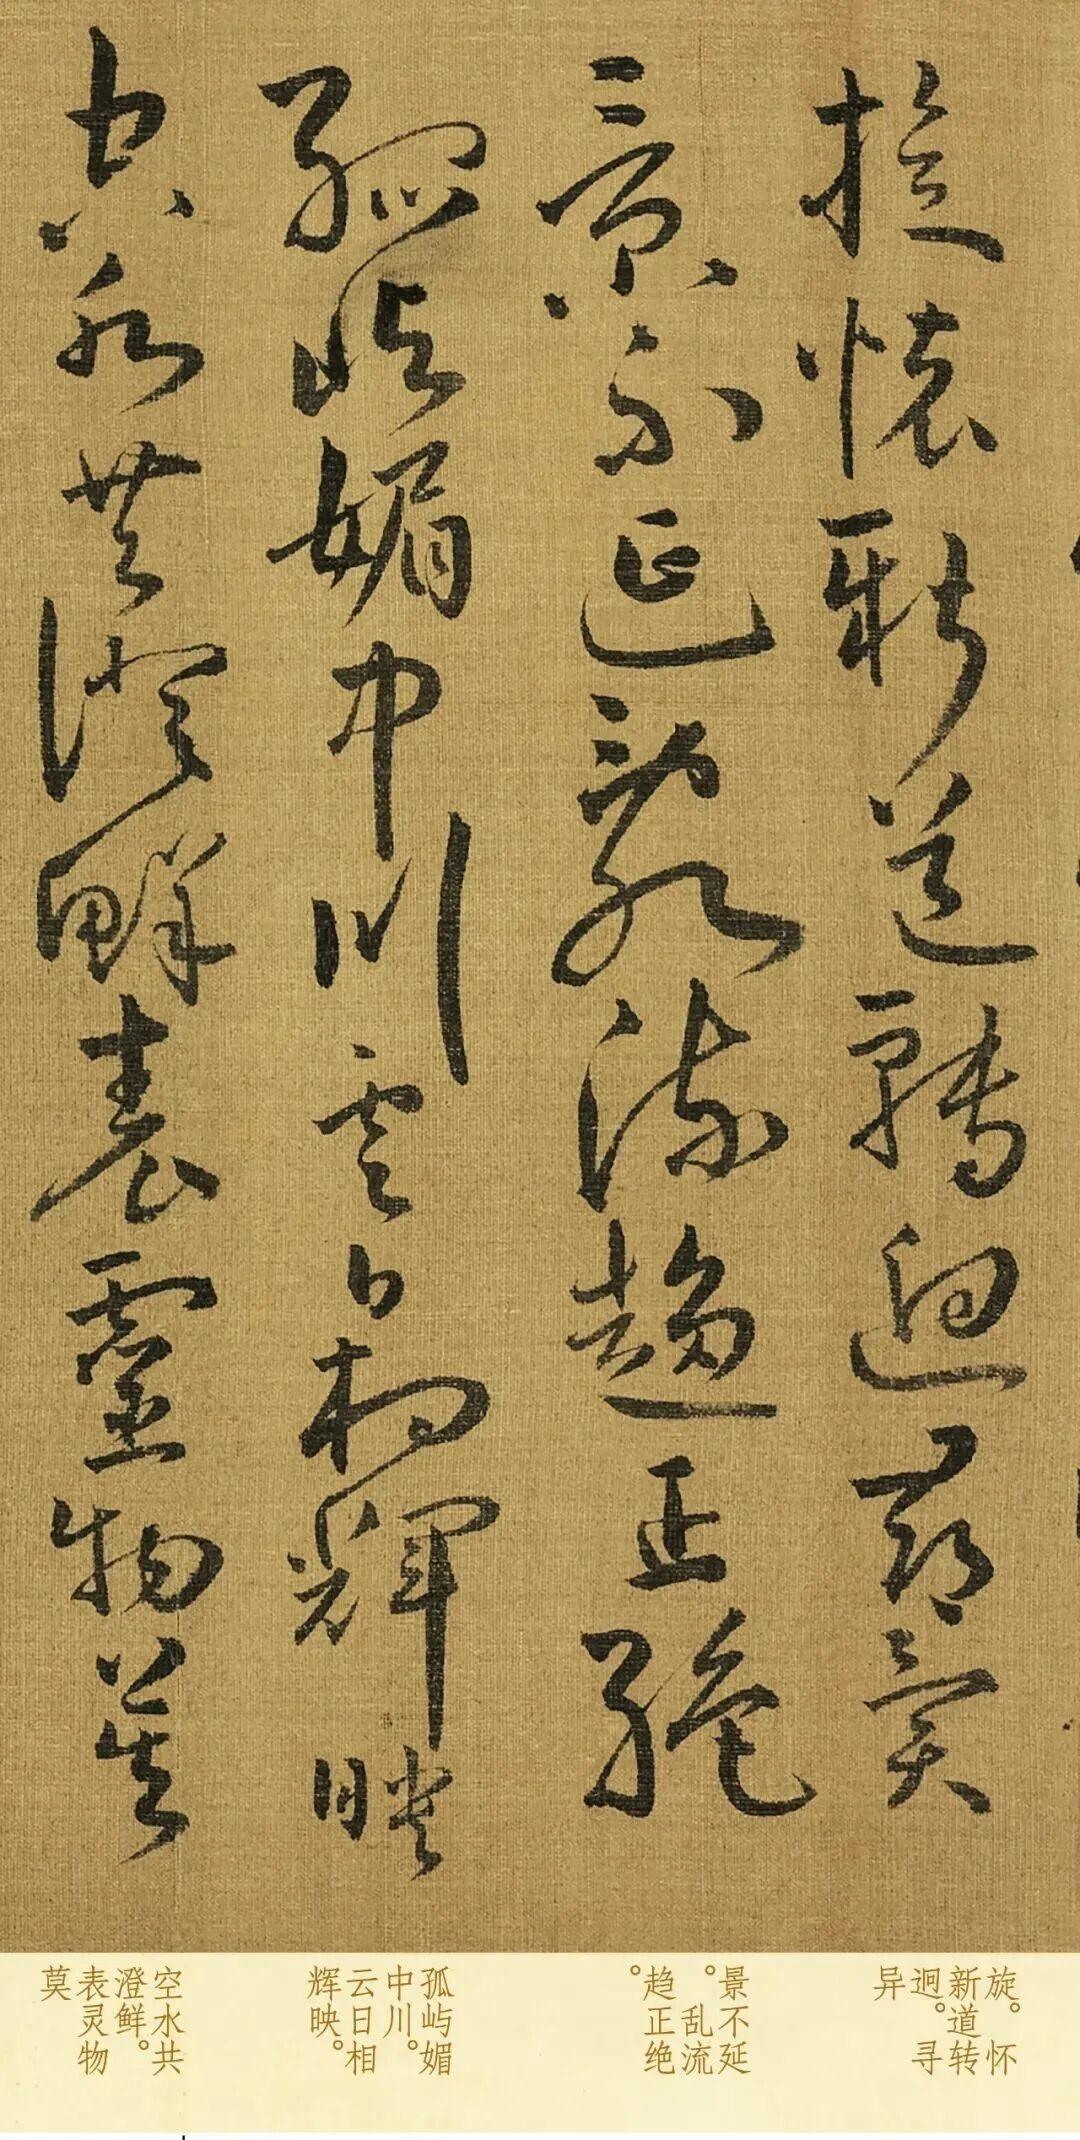 旋懷新道轉迥尋異
景不延亂流趨正絕
孤嶼媚中川雲日相輝暎
空水共澄鮮表靈物莫
旋。怀
新道转
迥。寻
异
景不延
。乱流
趋正绝
。
孤屿媚
中川。
云日相
辉映。
空水共
澄鲜。
表灵物
莫